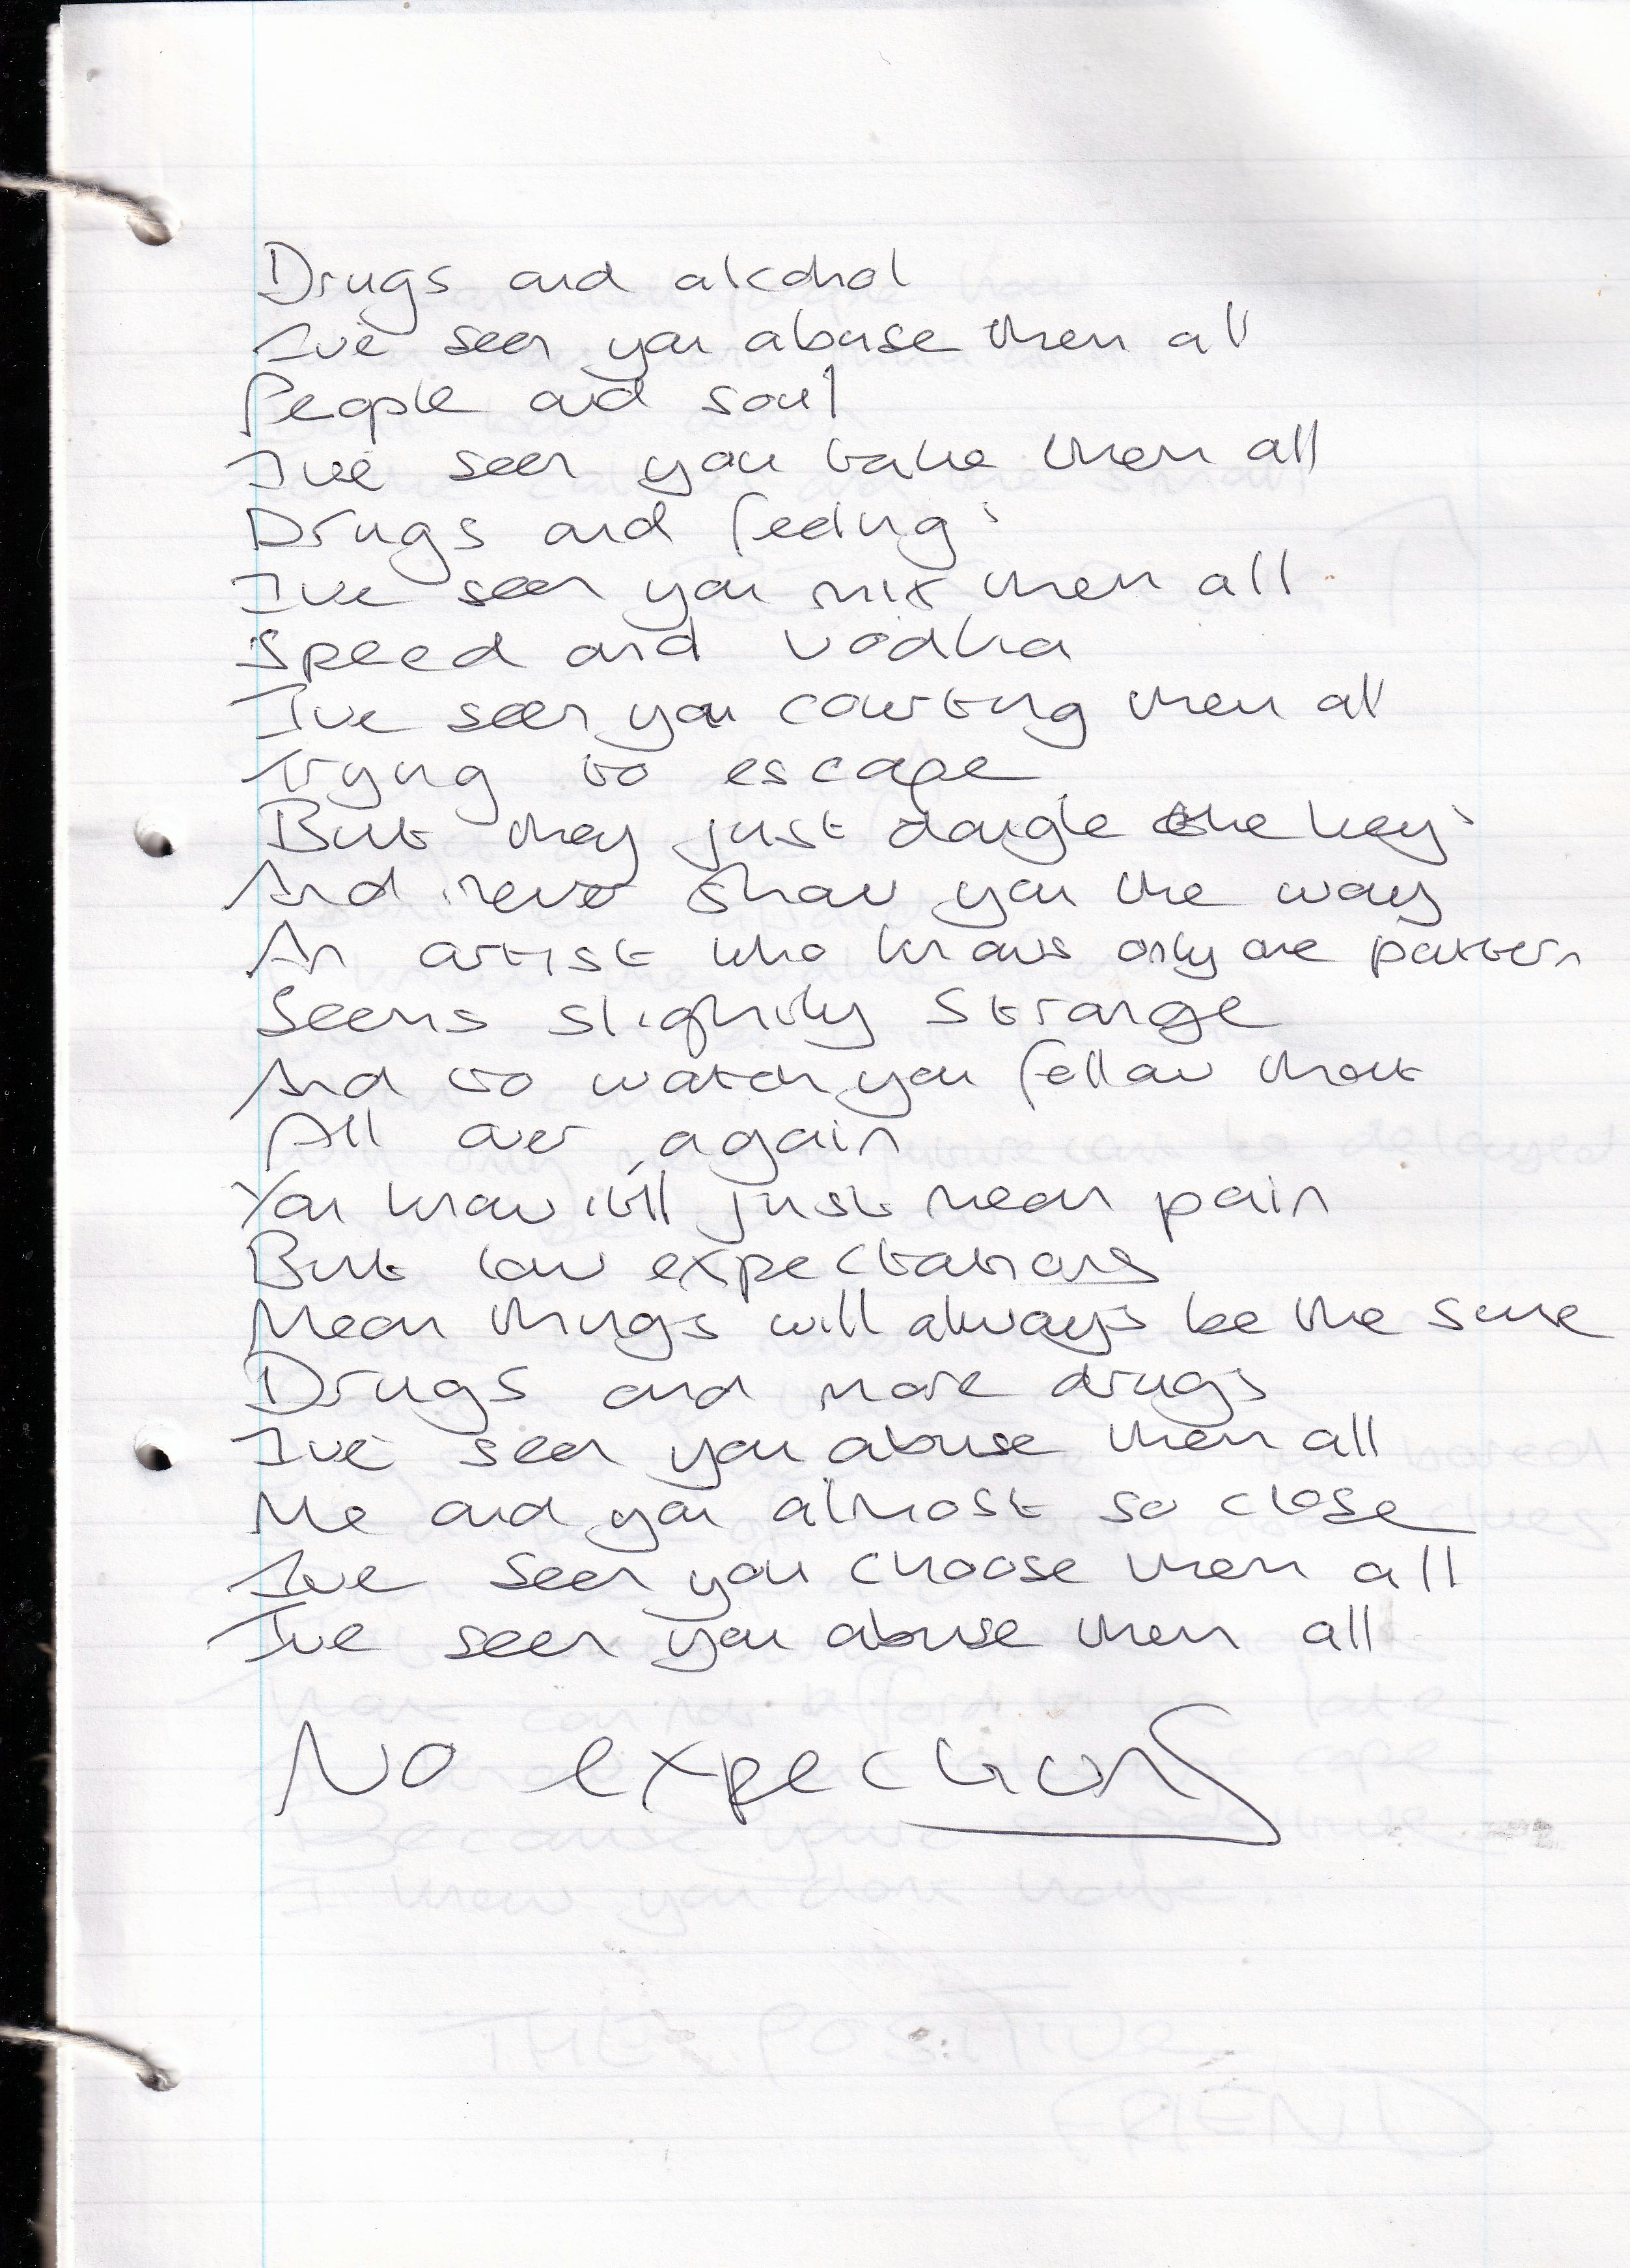 Drugs and alcohol
I've seen you abuse them all
People and soul
I've seen you take them all
Drugs and feelings
I've seen you mix them all
Speed and vodka
I've seen you courting them all
Trying to escape
But they just dangle the keys
And never show you the way
An artist who knows only one pattern
Seems slightly strange
And to watch you follow that
All over again
You know it'll just mean pain
But low expectations
Mean things will always be the same
Drugs and more drugs
I've seen you abuse them all
Me and you almost so close
I've seen you choose them all
I've seen you abuse them all
No expections
THE POSITIVE
FRIEND